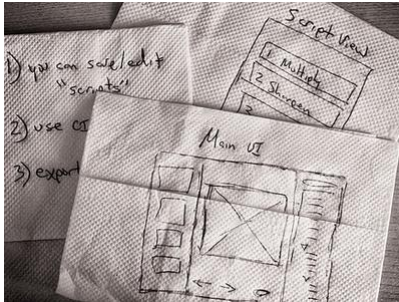 1) you can save/edit
"scripts"
2) use
3) export
Script View
1. Multiply
2. Sharpen
3.
Main UI